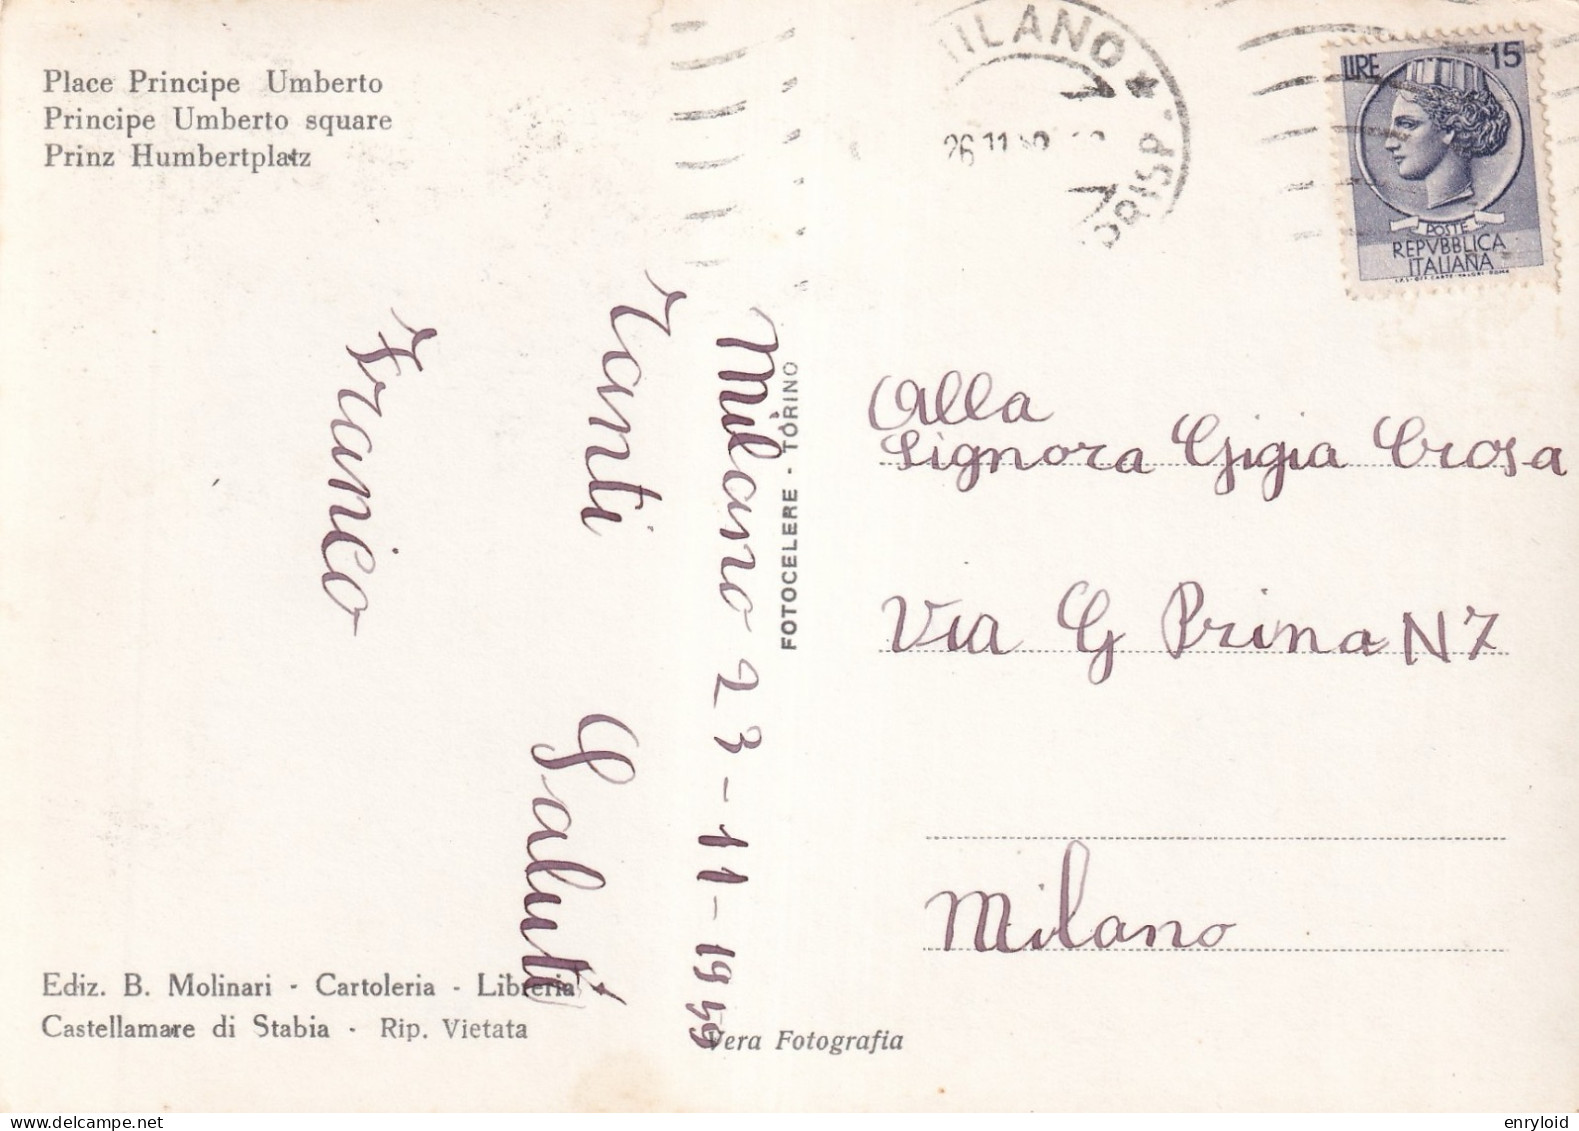 Place Principe Umberto
Principe Umberto square
Prinz Humbertplatz
MILANO
26.11
LIRE 15
POSTE
REPVBBLICA
ITALIANA
Milano 23-11-1959
Tanti Saluti
Franco
FOTOCELERE - TORINO
Alla
Signora Gigia Crosa
Via G Prina N 7
Milano
Ediz. B. Molinari - Cartoleria - Libreria
Castellamare di Stabia - Rip. Vietata
Vera Fotografia
enryloid